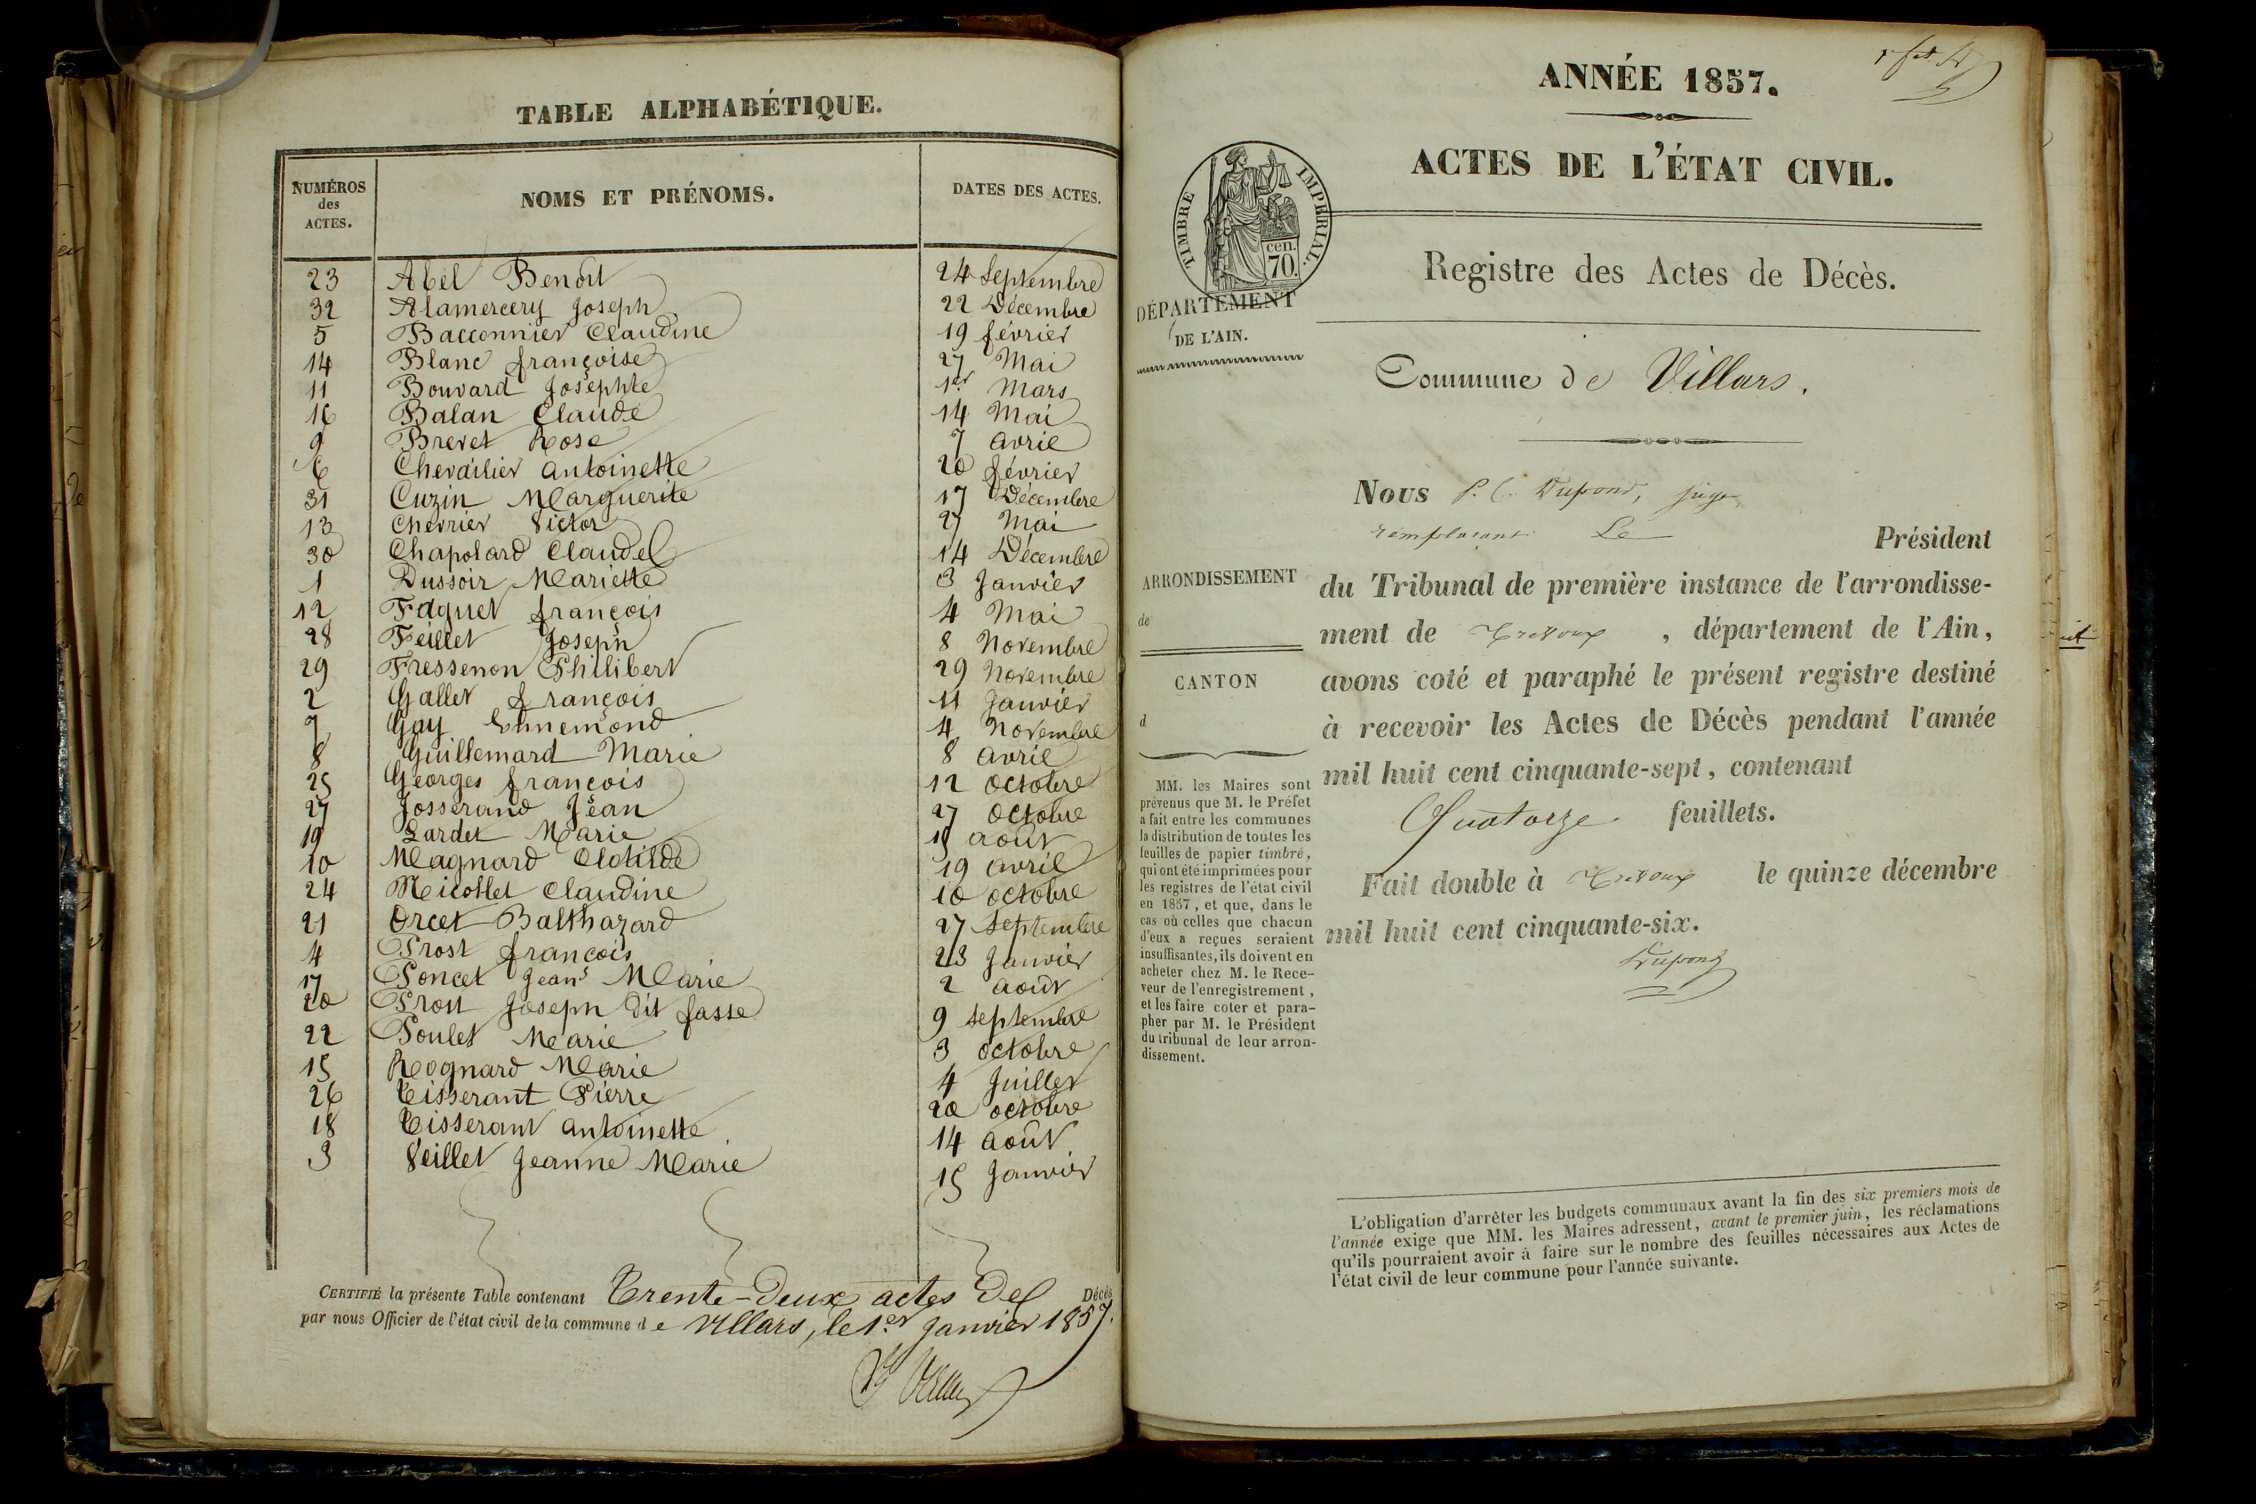 TABLE ALPHABÉTIQUE.
NUMÉROS des ACTES. NOMS ET PRÉNOMS. DATES DES ACTES.
23 Abel Benoît 24 Septembre
32 Alamercery Joseph 22 Décembre
5 Bacconnier Claudine 19 février
14 Blanc françoise 27 Mai
11 Bouvard Josephte 1er Mars
16 Balan Claude 14 Mai
9 Brevet Rose 7 avril
6 Chevailier antoinette 20 février
31 Cuzin Marguerite 17 Décembre
13 Chevrier Victor 27 Mai
30 Chapolard Claude 14 Décembre
1 Dussoir Mariette 3 Janvier
12 Faguet françois 4 Mai
28 Feillet Joseph 8 Novembre
29 Fressenon Philibert 29 Novembre
2 Gallet françois 11 Janvier
7 Gay Ennemond 4 Novembre
8 Guillemard Marie 8 avril
25 Georges françois 12 octobre
27 Josserand Jean 27 octobre
19 Lardet Marie août
10 Magnard Clotilde 19 avril
24 Nicollet Claudine 10 octobre
21 Orcet Balthazard 27 Septembre
4 Prost françois 23 Janvier
17 Poncet Jean Marie 2 août
20 Prost Joseph dit fasse 9 Septembre
22 Poulet Marie 3 octobre
15 Rognard Marie 4 Juillet
26 Tisserant Pierre 20 octobre
18 Tisserant antoinette 14 août
3 Veillet Jeanne Marie 15 Janvier
CERTIFIÉ la présente Table contenant Trente-deux actes de Décès
par nous Officier de l'état civil de la commune de Villars, le 1er Janvier 1857.
ANNÉE 1857.
ACTES DE L'ÉTAT CIVIL.
TIMBRE IMPÉRIAL.
cen.
70.
Registre des Actes de Décès.
DÉPARTEMENT
DE L'AIN.
Commune de Villars.
Nous P. C. Dupond, juge
remplaçant Le Président
ARRONDISSEMENT
de
CANTON
d
du Tribunal de première instance de l'arrondisse-
ment de Trévoux, département de l'Ain,
avons coté et paraphé le présent registre destiné
à recevoir les Actes de Décès pendant l'année
mil huit cent cinquante-sept, contenant
Quatorze feuillets.
Fait double à Trévoux le quinze décembre
mil huit cent cinquante-six.
Dupond
MM. les Maires sont
prévenus que M. le Préfet
a fait entre les communes
la distribution de toutes les
feuilles de papier timbré,
qui ont été imprimées pour
les registres de l'état civil
en 1857, et que, dans le
cas où celles que chacun
d'eux a reçues seraient
insuffisantes, ils doivent en
acheter chez M. le Rece-
veur de l'enregistrement,
et les faire coter et para-
pher par M. le Président
du tribunal de leur arron-
dissement.
L'obligation d'arrêter les budgets communaux avant la fin des six premiers mois de
l'année exige que MM. les Maires adressent, avant le premier juin, les réclamations
qu'ils pourraient avoir à faire sur le nombre des feuilles nécessaires aux Actes de
l'état civil de leur commune pour l'année suivante.